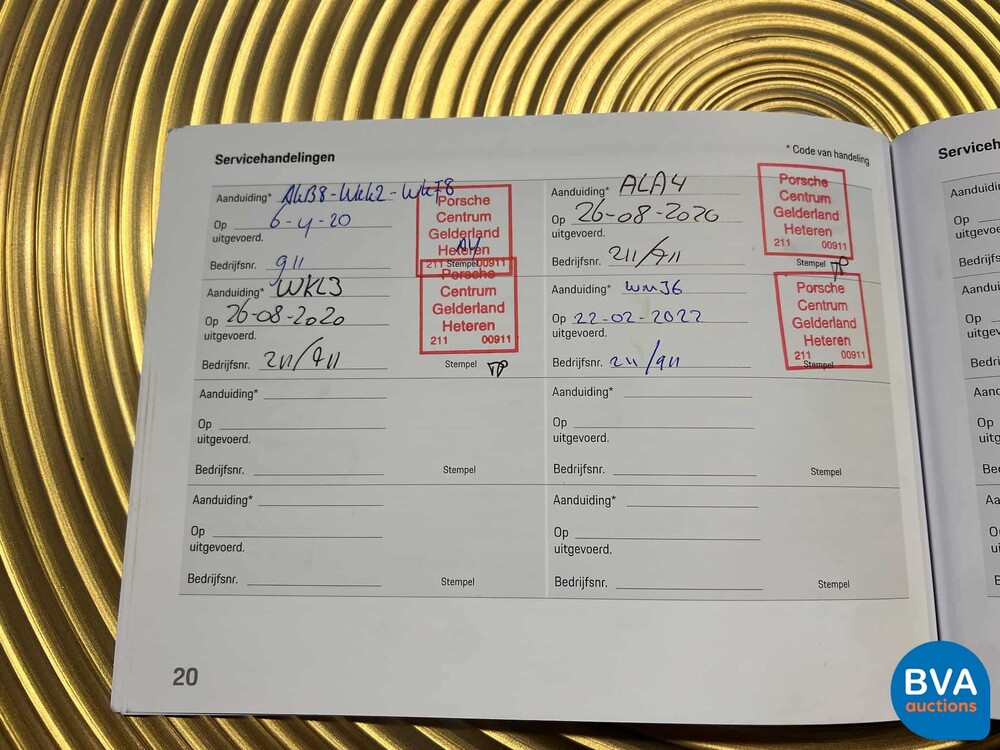 Servicehandelingen
* Code van handeling
Aanduiding* AHB8-WKL2-WKF8
Op 6-4-20
uitgevoerd.
Bedrijfsnr. 911
Porsche
Centrum
Gelderland
Heteren
211 Stempel 00911
Aanduiding* ALA4
Op 26-08-2020
uitgevoerd.
Bedrijfsnr. 211/911
Porsche
Centrum
Gelderland
Heteren
211 00911
Stempel
Aanduiding* WKL3
Op 26-08-2020
uitgevoerd.
Bedrijfsnr. 211/911
Porsche
Centrum
Gelderland
Heteren
211 00911
Stempel
Aanduiding* WMJ6
Op 22-02-2022
uitgevoerd.
Bedrijfsnr. 211/911
Porsche
Centrum
Gelderland
Heteren
211 00911
Stempel
Aanduiding*
Op
uitgevoerd.
Bedrijfsnr. Stempel
Aanduiding*
Op
uitgevoerd.
Bedrijfsnr. Stempel
Aanduiding*
Op
uitgevoerd.
Bedrijfsnr. Stempel
Aanduiding*
Op
uitgevoerd.
Bedrijfsnr. Stempel
20
BVA
auctions